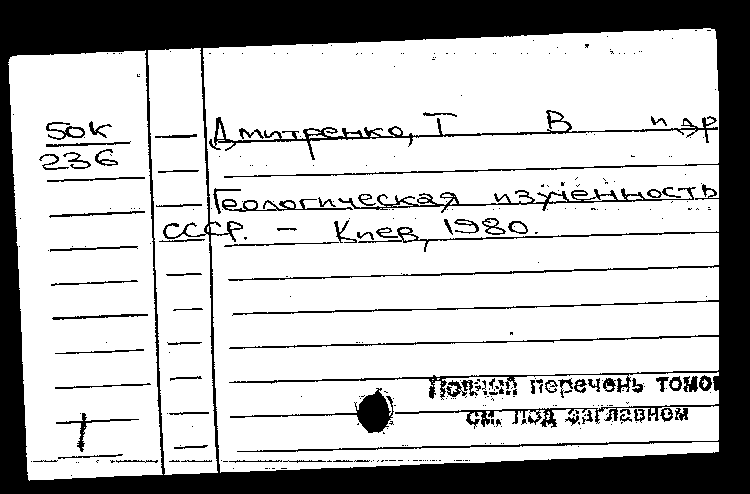 50К
236
Дмитренко, Т В и др
Геологическая изученность
СССР. – Киев, 1980.
Полный перечень томов
см. под заглавием
1